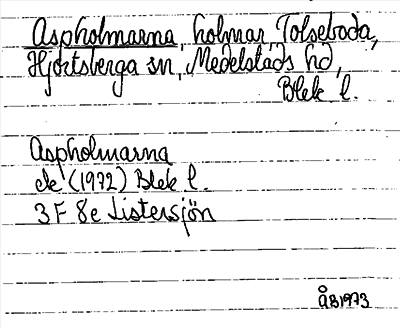 Aspholmarna, holmar, Tolseboda,
Hjortsberga sn, Medelstads hd,
Blek l.
Aspholmarna
ek (1972) Blek l.
3F 8e Listersjön
ÅB1973